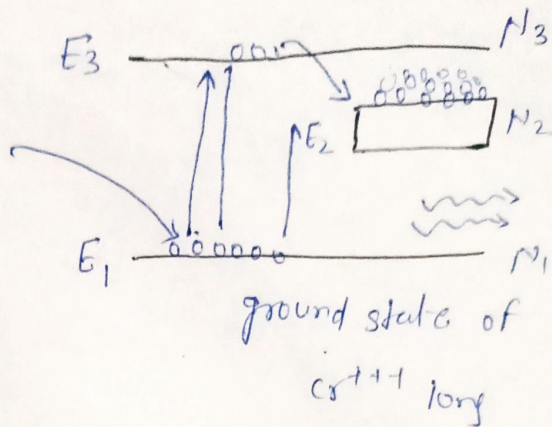 E3
N3
E2
N2
E1
N1
ground state of
cr+++ long